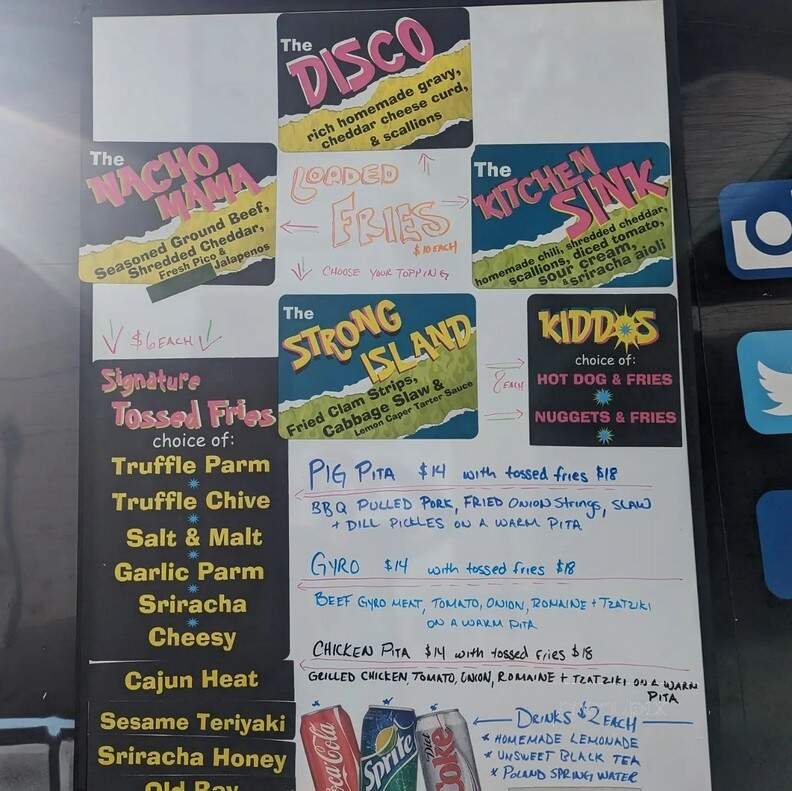 The
DISCO
rich homemade gravy,
cheddar cheese curd,
& scallions
The
NACHO
MAMA
Seasoned Ground Beef,
Shredded Cheddar,
Fresh Pico &
Jalapenos
LOADED
FRIES
$10 EACH
CHOOSE YOUR TOPPING
The
KITCHEN
SINK
homemade chili, shredded cheddar,
scallions, diced tomato,
sour cream,
& sriracha aioli
The
STRONG
ISLAND
Fried Clam Strips,
Cabbage Slaw &
Lemon Caper Tarter Sauce
8 EACH
KIDDOS
choice of:
HOT DOG & FRIES
NUGGETS & FRIES
$6 EACH
Signature
Tossed Fries
choice of:
Truffle Parm
Truffle Chive
Salt & Malt
Garlic Parm
Sriracha
Cheesy
Cajun Heat
Sesame Teriyaki
Sriracha Honey
Old Bay
PIG PITA $14 with tossed fries $18
BBQ PULLED PORK, FRIED ONION STRINGS, SLAW
+ DILL PICKLES ON A WARM PITA
GYRO $14 with tossed fries $18
BEEF GYRO MEAT, TOMATO, ONION, ROMAINE + TZATZIKI
ON A WARM PITA
CHICKEN PITA $14 with tossed fries $18
GRILLED CHICKEN, TOMATO, ONION, ROMAINE + TZATZIKI ON A WARM
PITA
Coca-Cola
Sprite
Diet
Coke
DRINKS $2 EACH
* HOMEMADE LEMONADE
* UNSWEET BLACK TEA
* POLAND SPRING WATER